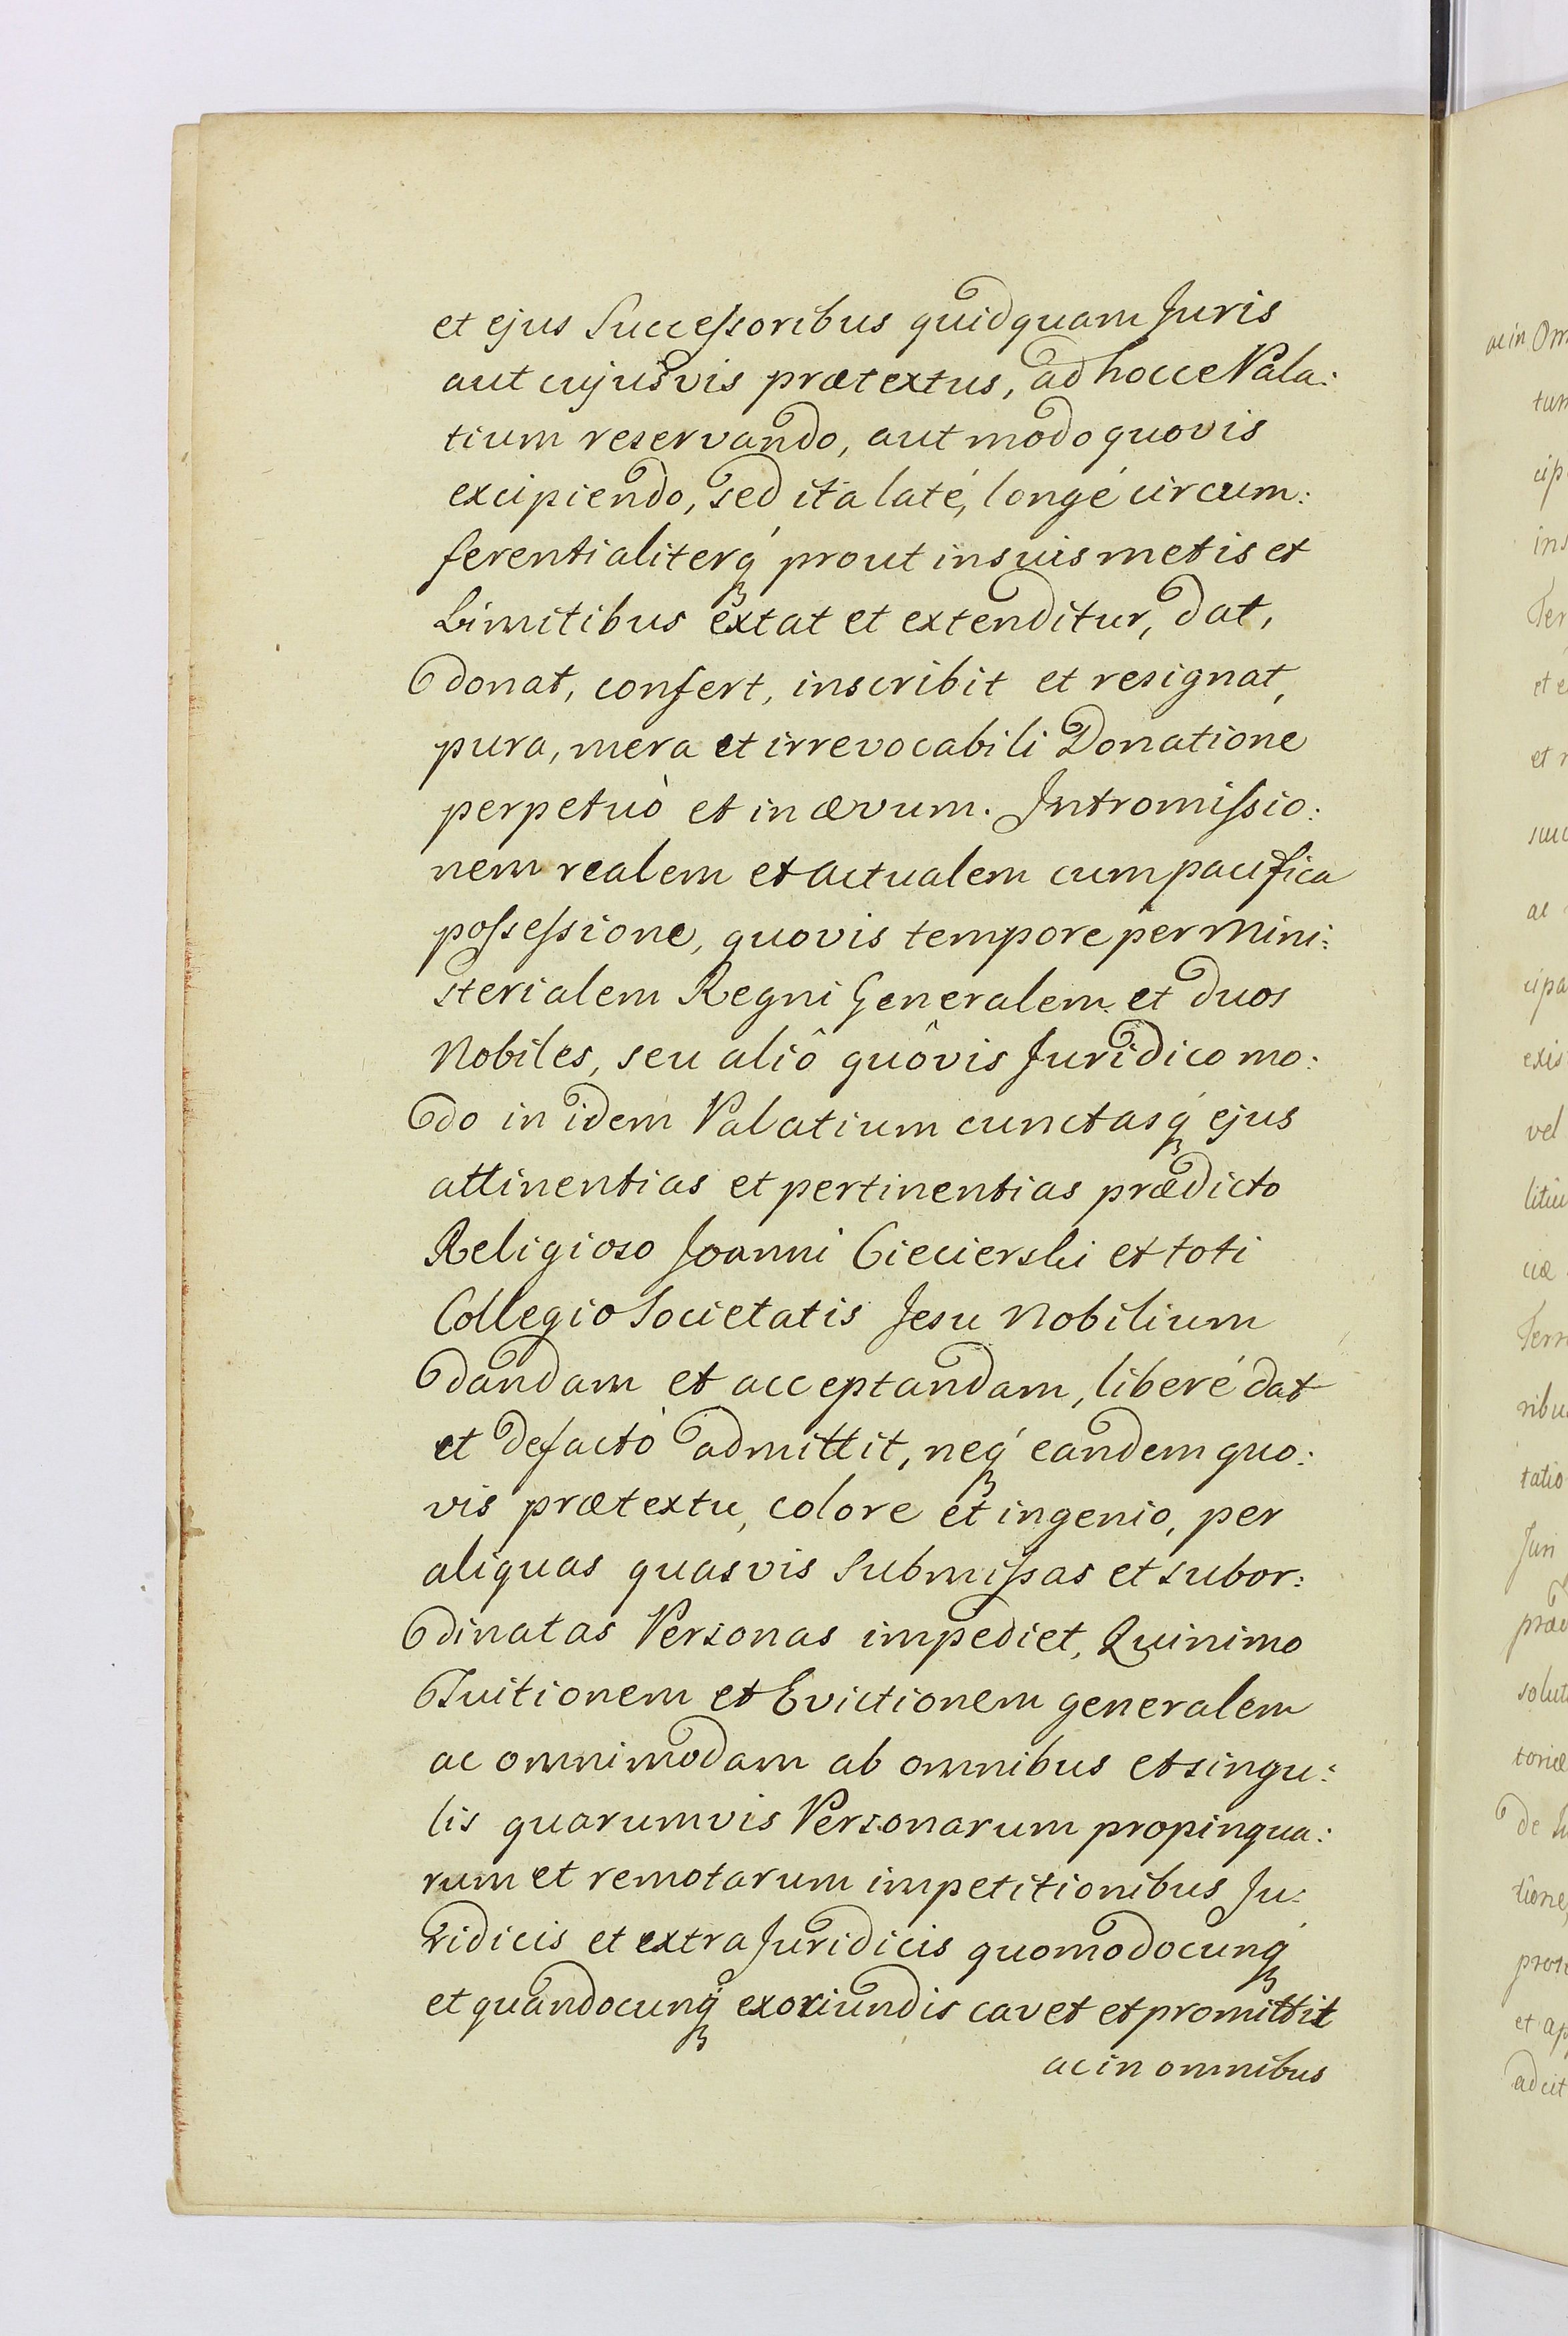 et ejus Successoribus quidquam Juris
aut cujusvis prætextus, ad hocce Pala:
tium reservando, aut modo quovis
excipiendo, sed ita laté, longé circum:
ferentialiterq́ prout in suis metis et
Limitibus extat et extenditur, dat,
donat, confert, inscribit et resignat,
pura, mera et irrevocabili Donatione
perpetuò et in ævum. Intromissio:
nem realem et actualem cum pacifica
possessione, quovis tempore per Mini:
sterialem Regni Generalem et duos
Nobiles, seu aliô quôvis Juridico mo:
do in idem Palatium cunctasq́ ejus
attinentias et pertinentias prædicto
Religioso Joanni Ciecierski et toti
Collegio Societatis Jesu Nobilium
dandam et acceptandam, liberé dat
et defactò admittit, neq́ eandem quo:
vis prætextu, colore et ingenio, per
aliquas quasvis Submissas et subor:
dinatas Personas impediet, Quinimo
Tuitionem et Evictionem generalem
ac omnimodam ab omnibus et singu:
lis quarumvis Personarum propinqua:
rum et remotarum impetitionibus Ju:
ridicis et extra Juridicis quomodocunq́
et quandocunq́ exoriundis cavet et promittit
ac in omnibus